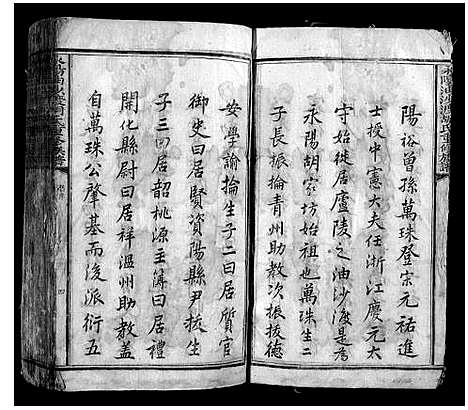 陽裕曾孫萬珠登宗元祐進
士授中憲大夫任浙江慶元太
守始徙居廬陵之油沙渡是為
永陽胡家坊始祖也萬珠生二
子長振掄青州助教次振拔德
安學諭掄生子二曰居質官
御史曰居賢資陽縣尹拔生
子三曰居韶桃源主簿曰居禮
開化縣尉曰居祥溫州助教蓋
自萬珠公肇基而後派衍五